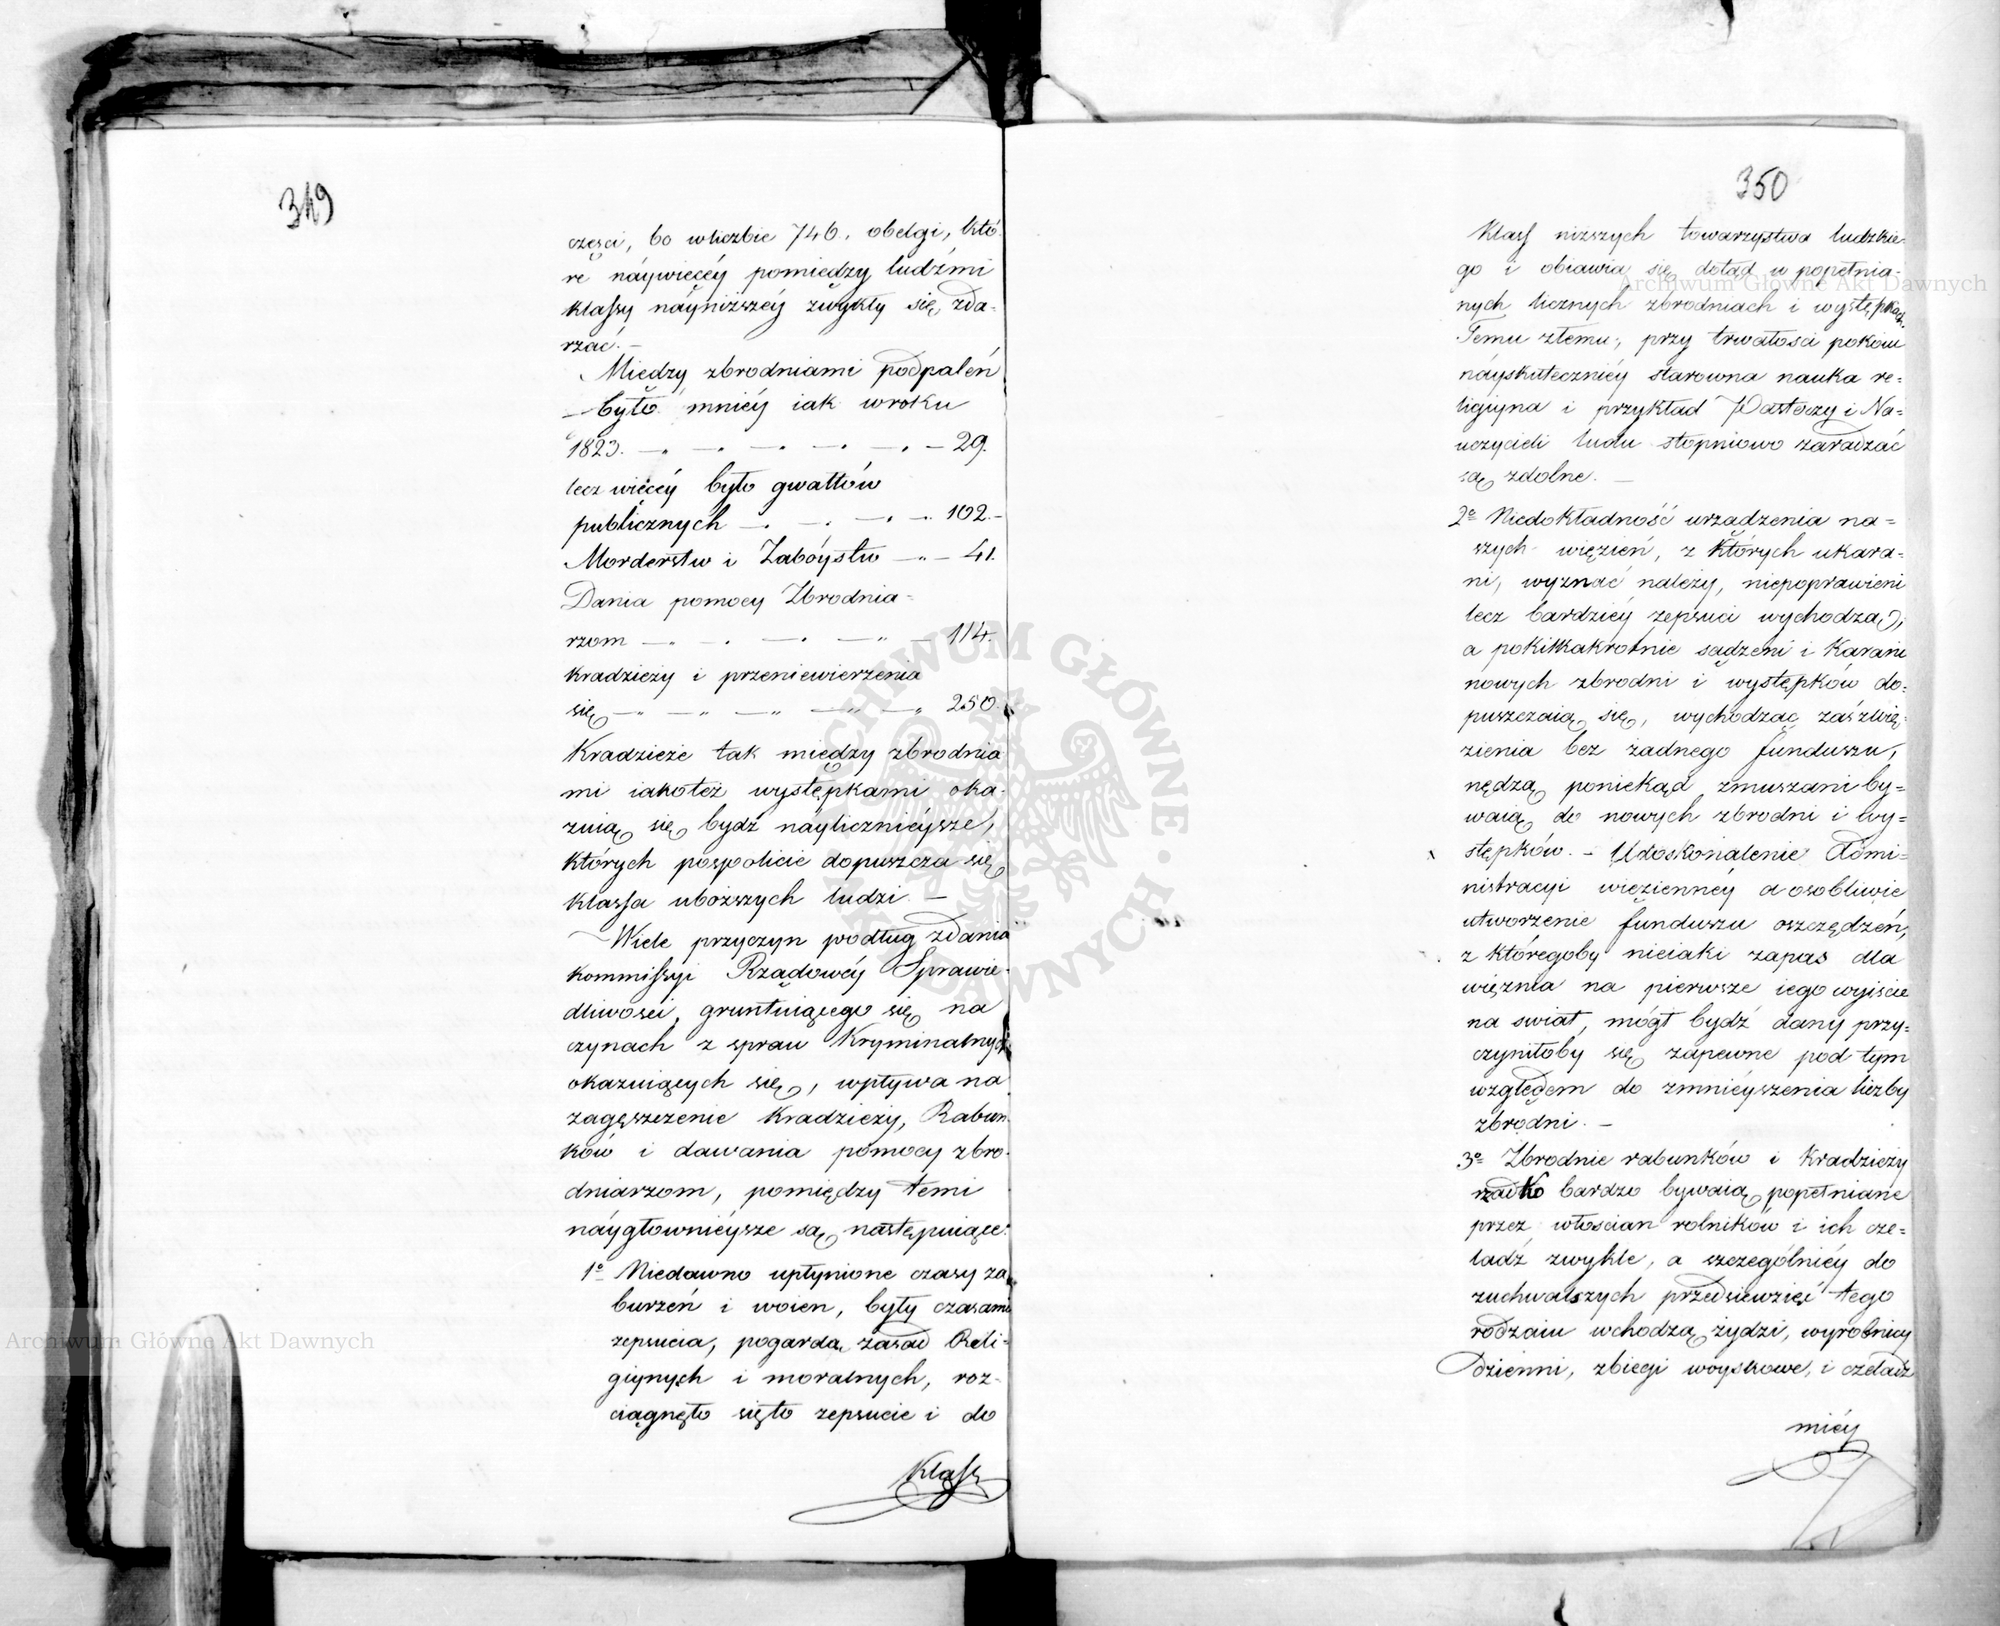 349
części, bo w liczbie 746. obelgi, któ-
re náywięcéy pomiędzy ludźmi
klassy náyniższéy zwykły się zda-
rzać. —
Między zbrodniami podpaleń
— było mniéy iak w roku
1823. — 29.
lecz więcéy było gwałtów
publicznych — 102. —
Morderstw i Zabóystw — 41.
Dania pomocy Zbrodnia-
rzom — 114.
kradzieży i przeniewierzenia
się — 250.
Kradzieże tak między zbrodnia
mi iakoteż występkami oka-
zuią się bydź náylicznieysze,
których pospolicie dopuszcza się
klassa uboższych ludzi. —
Wiele przyczyn podług zdania
kommissyi Rządowéy Sprawie-
dliwości, gruntuiącego się na
czynach z spraw Kryminalnych
okazuiących się, wpływa na
zagęszczenie kradzieży, Rabun-
ków i dawania pomocy zbro-
dniarzom, pomiędzy temi
náygłownieysze są następuiące:
1º Niedawno upłynione czasy za
burzeń i woien, były czasami
zepsucia, pogarda zasad Reli-
giynych i moralnych, roz-
ciągnęło się to zepsucie i do
Klass
350
Klass niższych towarzystwa ludzkie-
go i obiawia się dotąd w popełnia-
nych licznych zbrodniach i występkach.
Temu złemu, przy trwałości pokoiu
náyskuteczniéy starowna nauka re-
ligiyna i przykład Pasterzy i Na-
uczycieli ludu stopniowo zaradzać
są zdolne. —
2º Niedokładność urządzenia na-
szych więzień, z których ukara-
ni, wyznać należy, niepoprawieni
lecz bardziéy zepsuci wychodzą,
a pokilkakrotnie sądzeni i Karani
nowych zbrodni i występków do-
puszczaią się, wychodząc zaś z wię-
zienia bez żadnego funduszu,
nędzą poniekąd zmuszani by-
waią do nowych zbrodni i wy-
stępków. — Udoskonalenie Admi-
nistracyi więziennéy a osobliwie
utworzenie funduszu oszczędzeń,
z któregoby nieiaki zapas dla
więźnia na pierwsze iego wyiście
na swiat, mógł bydź dany przy-
czyniłoby się zapewne pod tym
względem do zmniéyszenia liczby
zbrodni. —
3º Zbrodnie rabunków i Kradzieży
rzadko bardzo bywaią popełniane
przez włoscian rolników i ich cze-
ladź zwykle, a szczególniéy do
zuchwalszych przedsiewzięć tego
rodzaiu wchodzą żydzi, wyrobnicy
dzienni, zbiegi woyskowe, i czeladź
miéy
Archiwum Główne Akt Dawnych
Archiwum Główne Akt Dawnych
ARCHIWUM GŁÓWNE AKT DAWNYCH